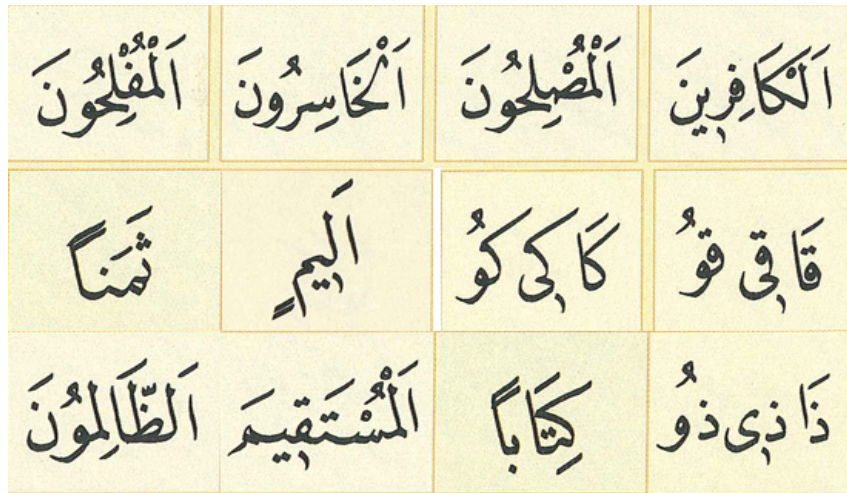 اَلْكَافِرٖينَ اَلْمُصْلِحُونَ اَلْخَاسِرُونَ اَلْمُفْلِحُونَ
قَا قٖى قوُ كَا كٖى كوُ اَلٖيمٍ ثَمَناً
ذَا ذٖى ذوُ كِتَاباً اَلْمُسْتَقٖيمَ اَلظَّالِموُنَ